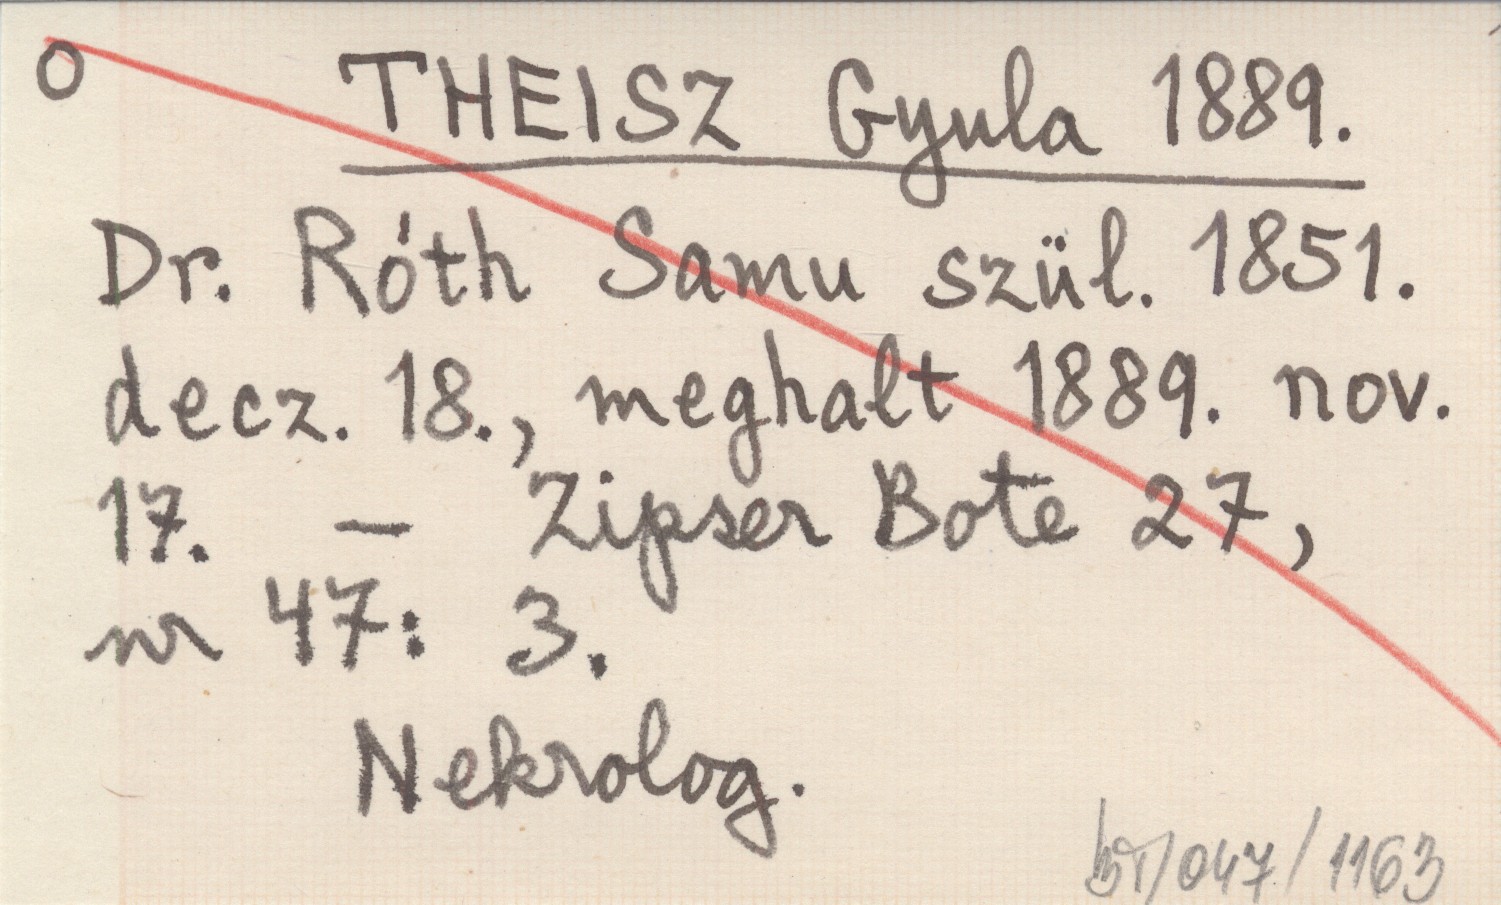 O THEISZ Gyula 1889.
Dr. Róth Samu szül. 1851.
decz. 18., meghalt 1889. nov.
17. — Zipser Bote 27,
nr 47: 3.
Nekrolog.
/047/1163